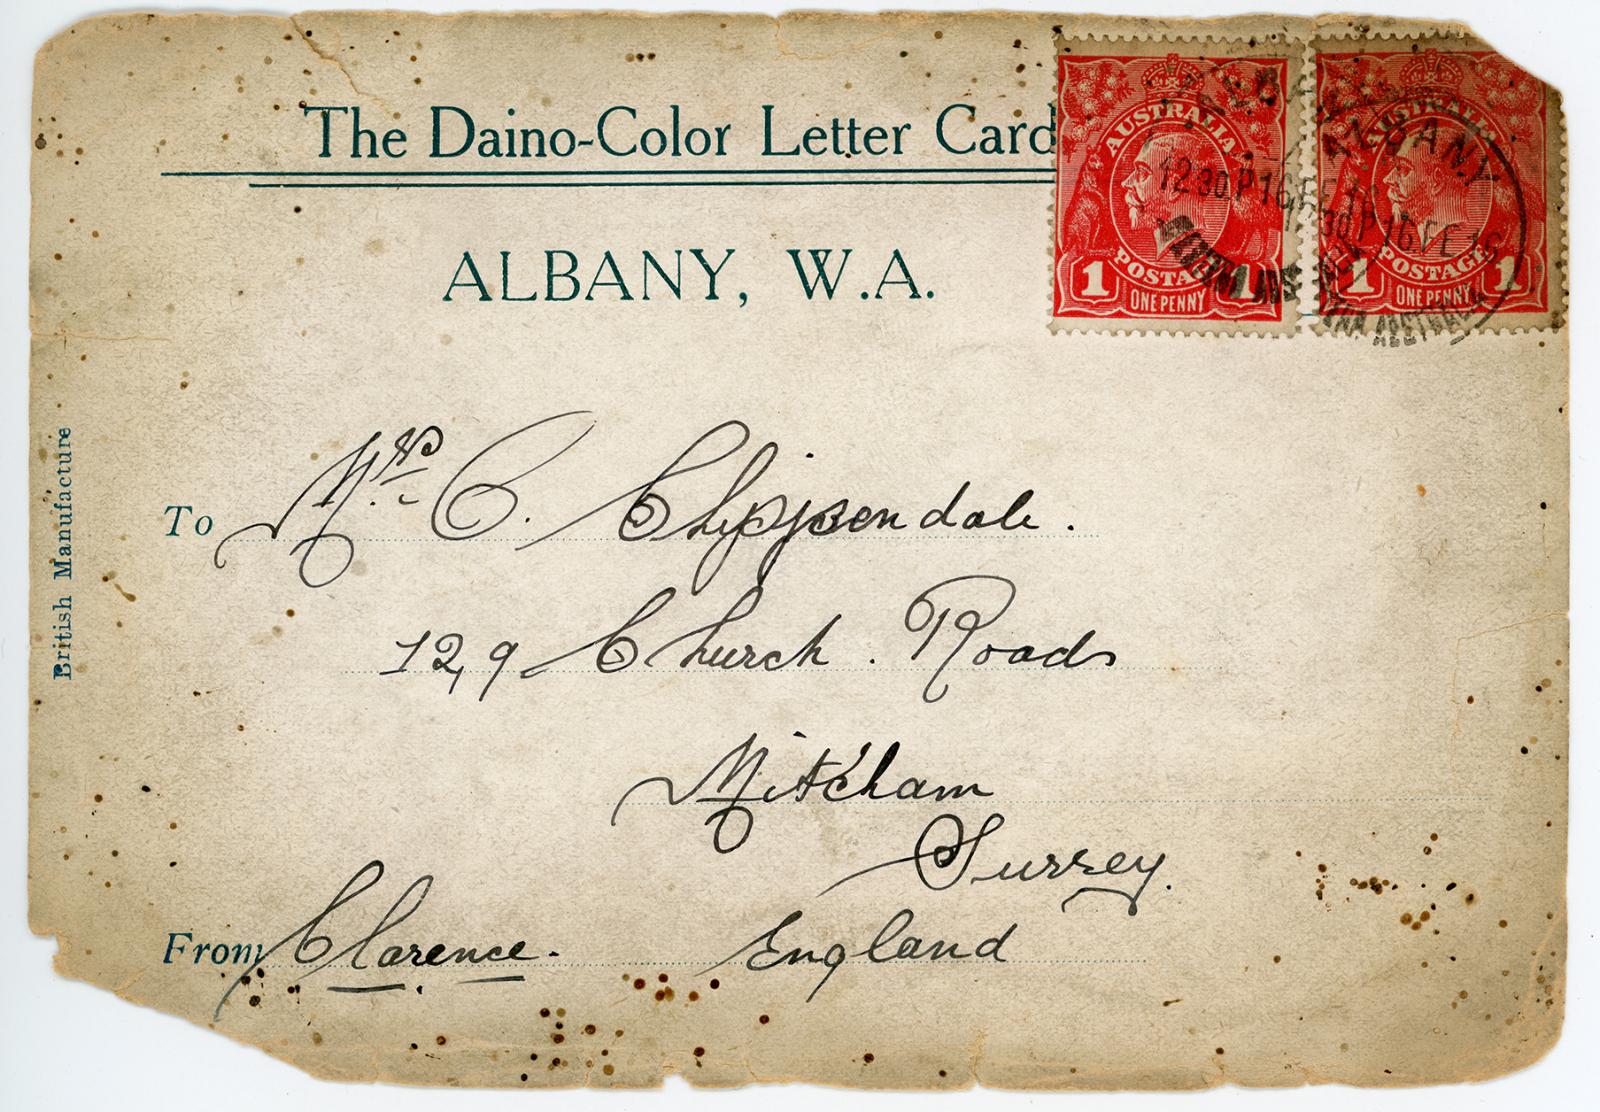 The Daino-Color Letter Card
ALBANY, W.A.
AUSTRALIA
1 POSTAGE
ONE PENNY
AUSTRALIA
1 POSTAGE 1
ONE PENNY
ALBANY
12 30 P 16 FE 16
30 P 16 FE 16
British Manufacture
To Mrs. C. Chippendale.
129 Church. Roads
Mitcham
Surrey.
From Clarence. England